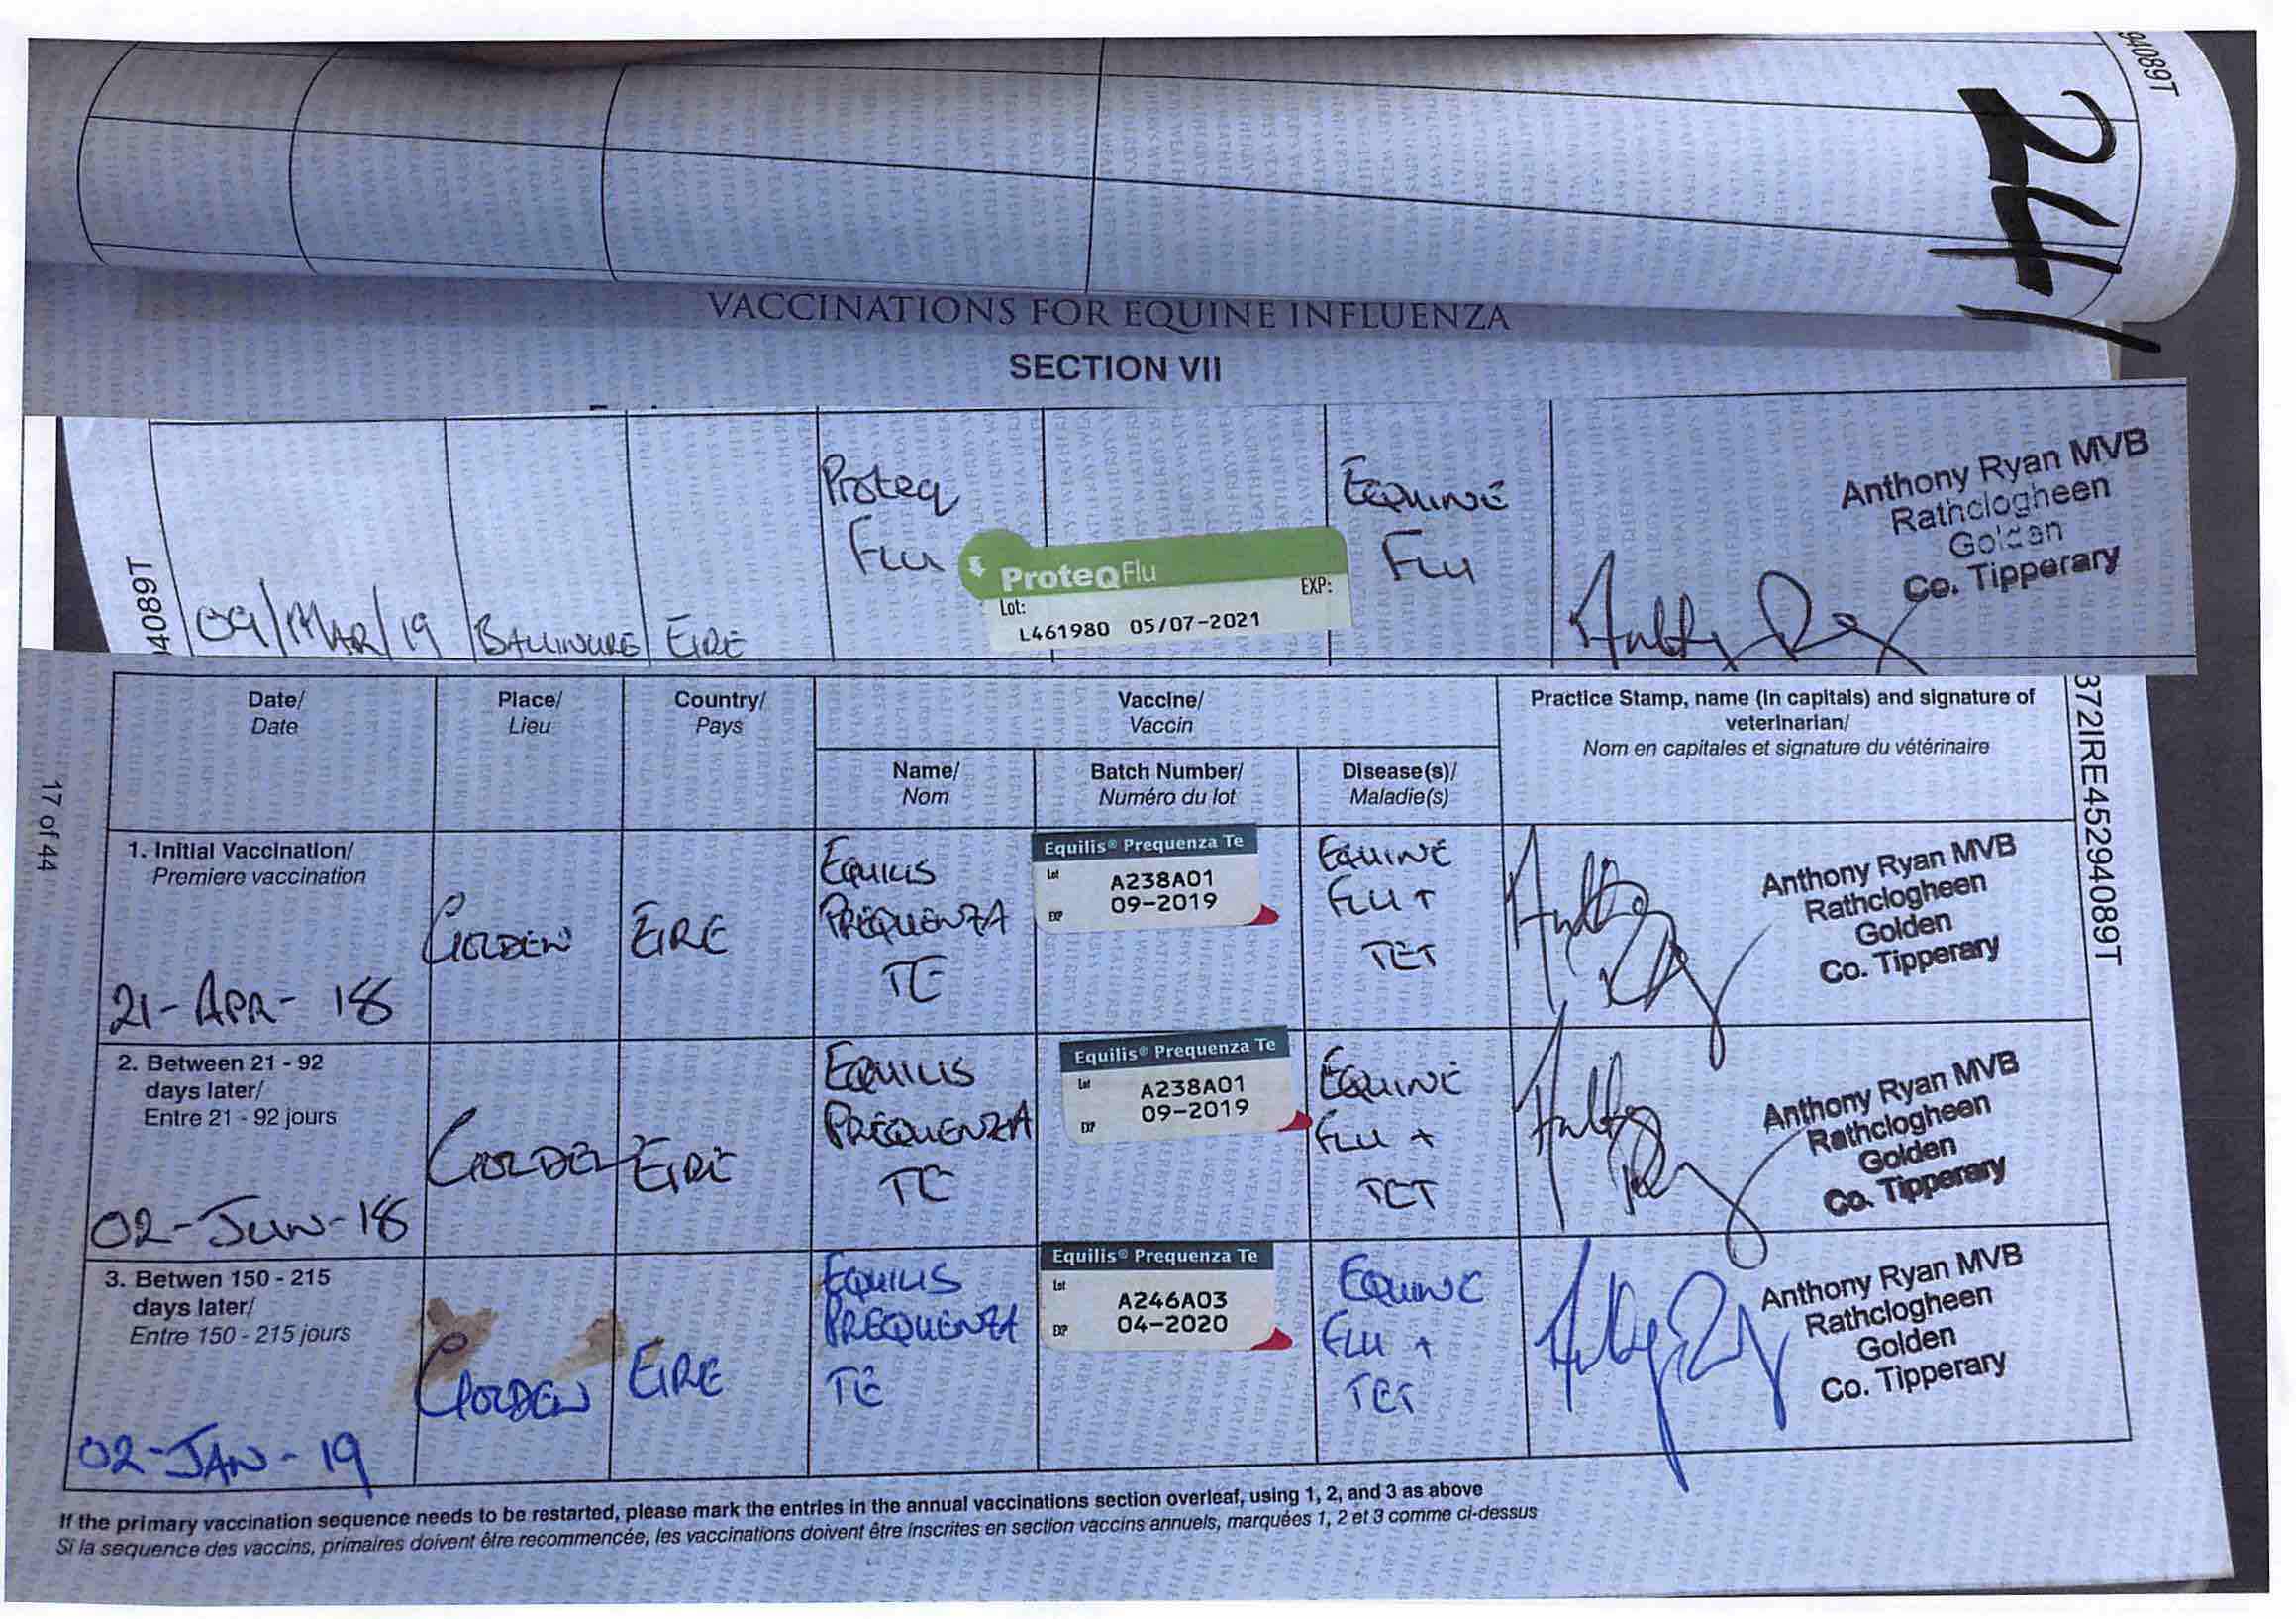 94089T
24
VACCINATIONS FOR EQUINE INFLUENZA
SECTION VII
94089T
09/MAR/19
BALLINURE
EIRE
Proteq
Flu
ProteqFlu
Lot:
EXP:
L461980 05/07-2021
EQUINE
FLU
Anthony Ryan MVB
Rathclogheen
Golden
Co. Tipperary
17 of 44
372IRE45294089T
Date/
Date
Place/
Lieu
Country/
Pays
Vaccine/
Vaccin
Practice Stamp, name (in capitals) and signature of
veterinarian/
Nom en capitales et signature du vétérinaire
Name/
Nom
Batch Number/
Numéro du lot
Disease(s)/
Maladie(s)
1. Initial Vaccination/
Premiere vaccination
21-APR-18
GOLDEN
EIRE
EQUILIS
PREQUENZA
TE
Equilis® Prequenza Te
Lot
A238A01
EXP
09-2019
EQUINE
FLU +
TET
Anthony Ryan MVB
Rathclogheen
Golden
Co. Tipperary
2. Between 21 - 92
days later/
Entre 21 - 92 jours
02-JUN-18
GOLDEN
EIRE
EQUILIS
PREQUENZA
TE
Equilis® Prequenza Te
Lot
A238A01
EXP
09-2019
EQUINE
FLU +
TET
Anthony Ryan MVB
Rathclogheen
Golden
Co. Tipperary
3. Betwen 150 - 215
days later/
Entre 150 - 215 jours
02-JAN-19
GOLDEN
EIRE
EQUILIS
PREQUENZA
TE
Equilis® Prequenza Te
Lot
A246A03
EXP
04-2020
EQUINE
FLU +
TET
Anthony Ryan MVB
Rathclogheen
Golden
Co. Tipperary
If the primary vaccination sequence needs to be restarted, please mark the entries in the annual vaccinations section overleaf, using 1, 2, and 3 as above
Si la sequence des vaccins, primaires doivent être recommencée, les vaccinations doivent être inscrites en section vaccins annuels, marquées 1, 2 et 3 comme ci-dessus